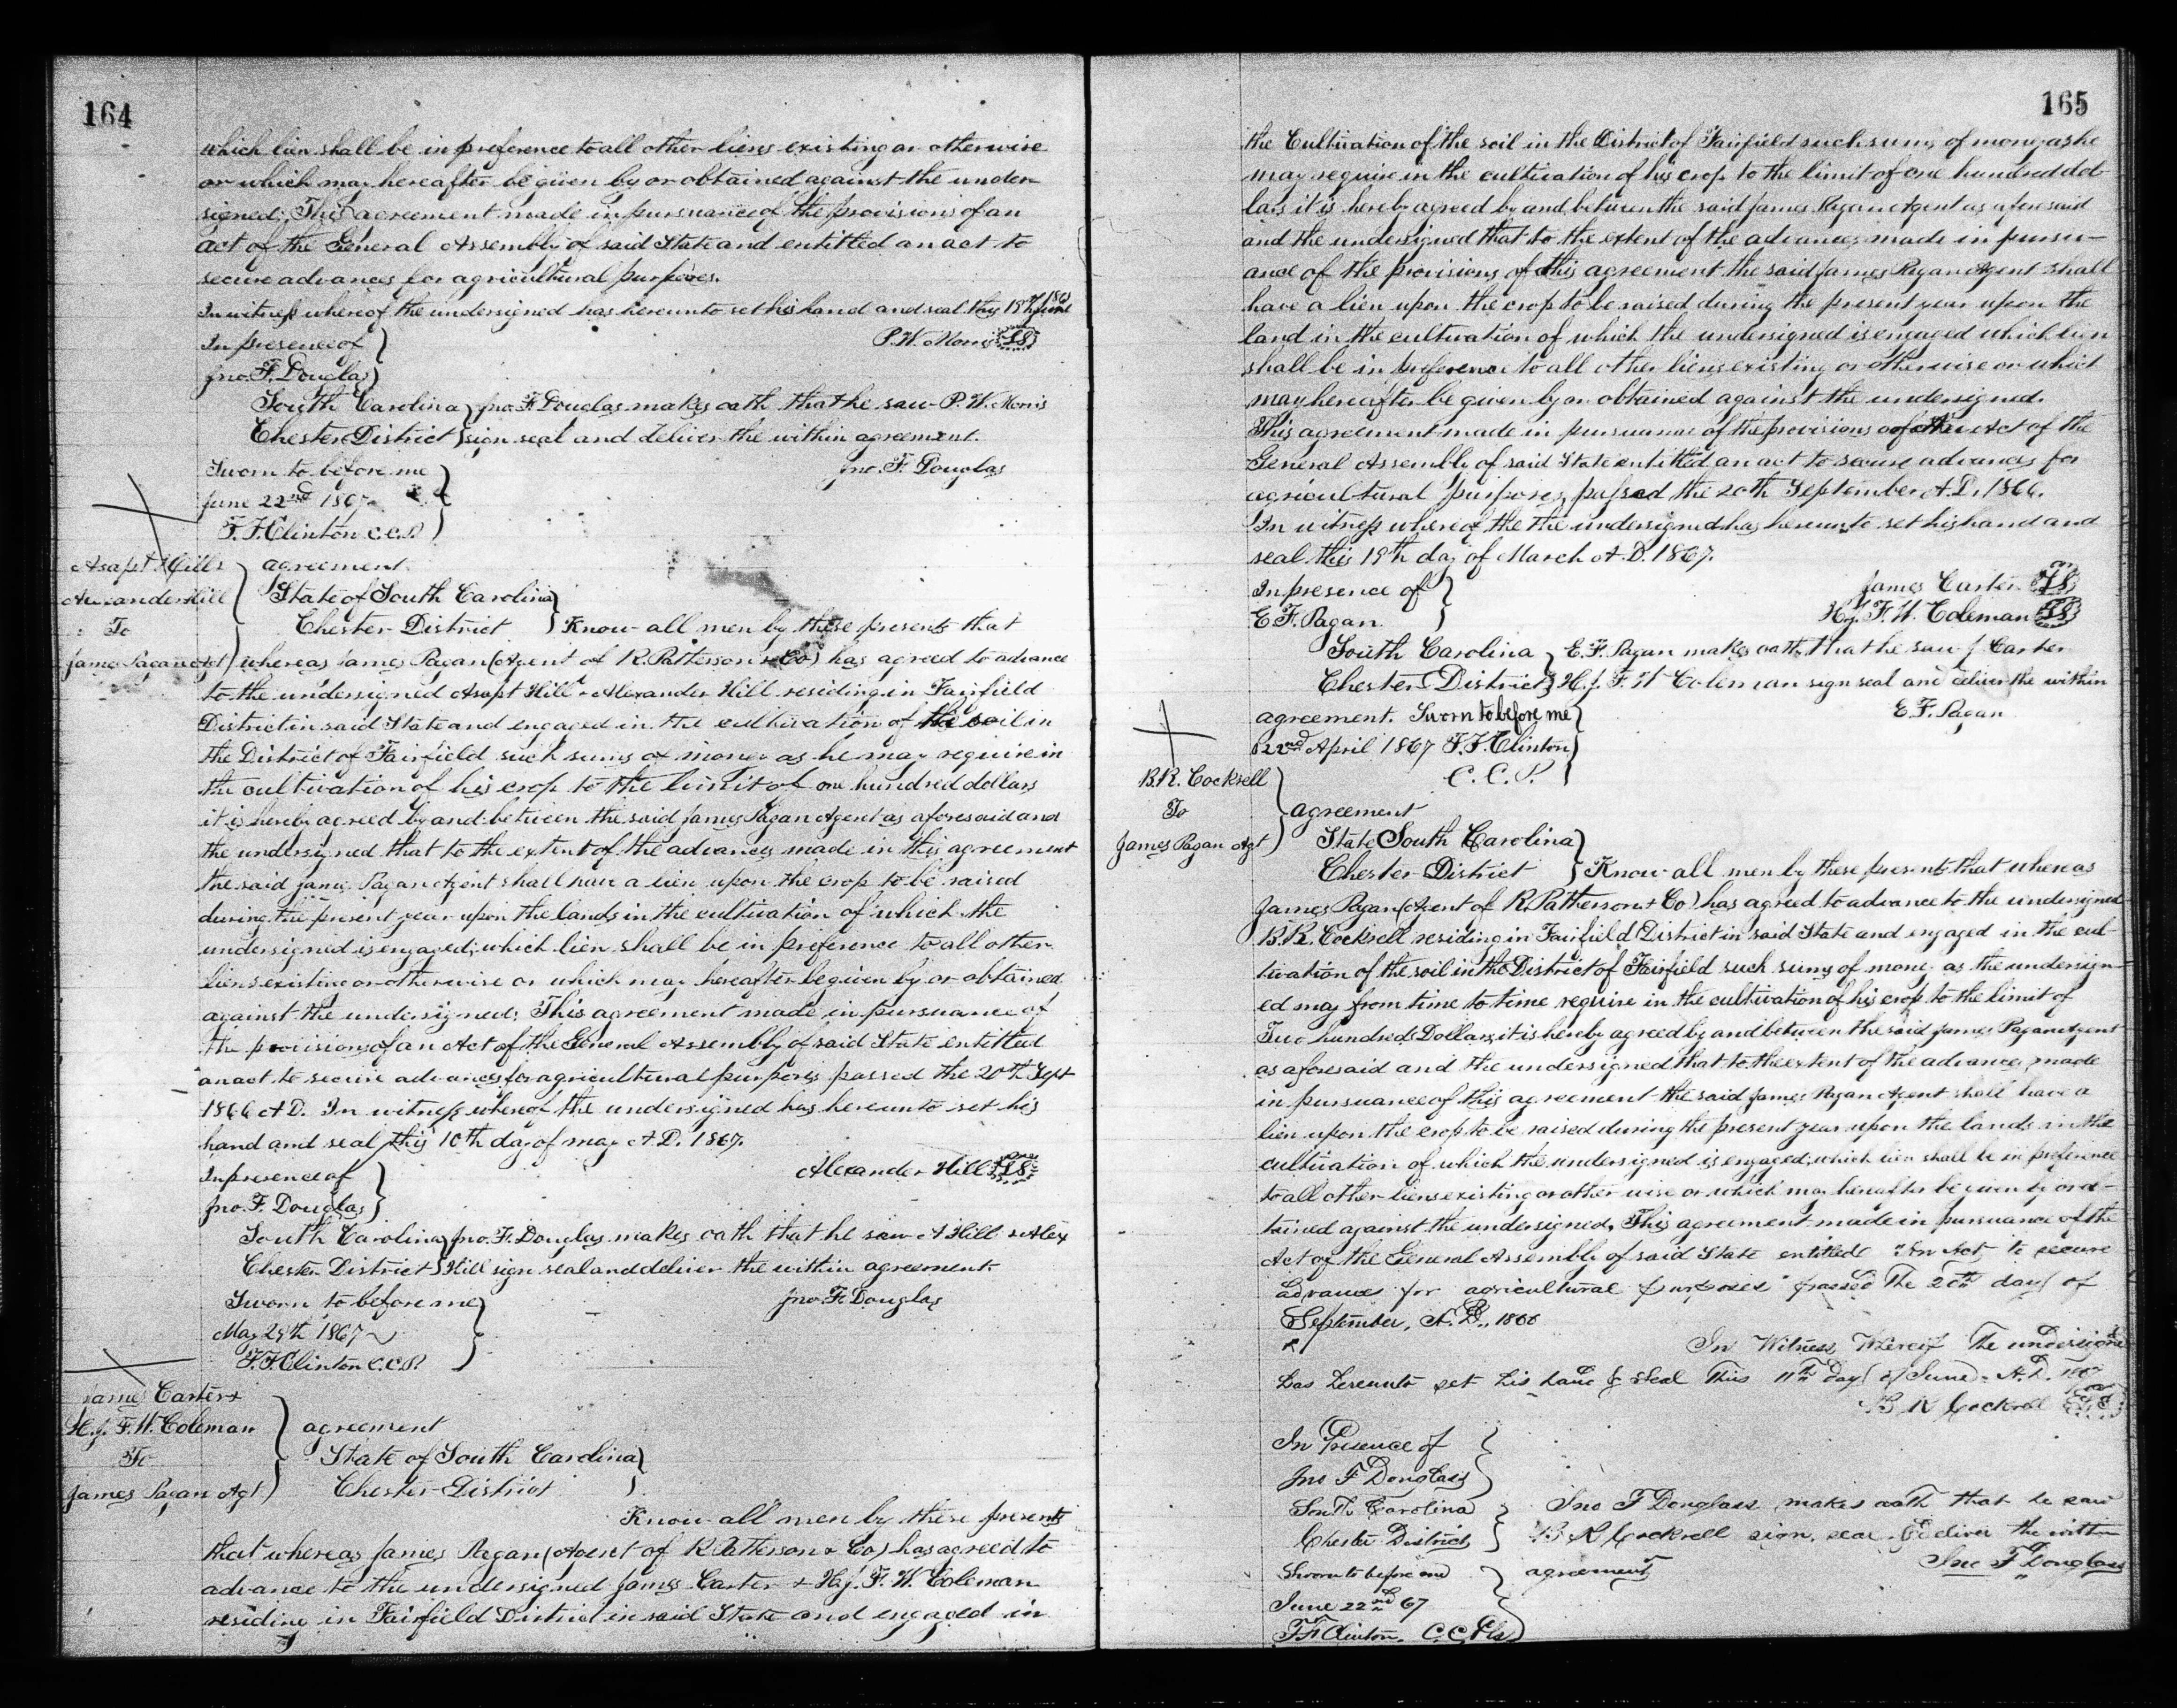 164
which lien shall be in preference to all other liens existing or otherwise
or which may hereafter be given by or obtained against the under-
signed; This agreement made in pursuance of the provisions of an
act of the General Assembly of said State and entitled an act to
secure advances for agricultural purposes.
In witness whereof the undersigned has hereunto set his hand and seal this 18th June
In presence of P. W. Morris LS
Jno. F. Douglas
South Carolina Jno. F. Douglas makes oath that he saw P. W. Morris
Chester District sign seal and deliver the within agreement.
Sworn to before me Jno. F. Douglas
June 22nd 1867
F. F. Clinton C.C.P.
Asapt Hill & agreement
Alexander Hill State of South Carolina
To Chester District Know all men by these presents that
James Pagan Agt whereas James Pagan (Agent of R. Patterson & Co) has agreed to advance
to the undersigned Asapt Hill & Alexander Hill residing in Fairfield
District in said State and engaged in the cultivation of the soil in
the District of Fairfield such sums of money as he may require in
the cultivation of his crop to the limit of one hundred dollars
it is hereby agreed by and between the said James Pagan Agent as aforesaid and
the undersigned that to the extent of the advances made in this agreement
the said James Pagan Agent shall have a lien upon the crop to be raised
during the present year upon the lands in the cultivation of which the
undersigned is engaged; which lien shall be in preference to all other
liens existing or otherwise or which may hereafter be given by or obtained
against the undersigned; This agreement made in pursuance of
the provisions of an Act of the General Assembly of said State entitled
an act to secure advances for agricultural purposes passed the 20th Sept
1866 A D. In witness whereof the undersigned has hereunto set his
hand and seal this 10th day of may A. D. 1867.
In presence of Alexander Hill LS
Jno. F. Douglas
South Carolina Jno. F. Douglas makes oath that he saw A Hill & Alex
Chester District Hill sign seal and deliver the within agreement.
Sworn to before me Jno. F. Douglas
May 29th 1867
F. F. Clinton C.C.P.
James Carter &
H. J. F. W. Coleman agreement
To State of South Carolina
James Pagan Agt Chester District
Know all men by these presents
that whereas James Pagan (Agent of R Patterson & Co) has agreed to
advance to the undersigned James Carter & H. J. F. W. Coleman
residing in Fairfield District in said State and engaged in
165
the Cultivation of the soil in the District of Fairfield such sums of money as he
may require in the cultivation of his crop to the limit of one hundred dol-
lars it is hereby agreed by and between the said James Pagan Agent as aforesaid
and the undersigned that to the extent of the advances made in pursu-
ance of the provisions of this agreement the said James Pagan Agent shall
have a lien upon the crop to be raised during the present year upon the
land in the cultivation of which the undersigned is engaged which lien
shall be in preference to all other liens existing or otherwise or which
may hereafter be given by or obtained against the undersigned.
This agreement made in pursuance of the provisions of the Act of the
General Assembly of said State entitled an act to secure advances for
agricultural purposes, passed the 20th September A. D. 1866.
In witness whereof the the undersigned has hereunto set his hand and
seal this 19th day of March A. D. 1867.
In presence of James Carter LS
E. F. Pagan H. J. F. W. Coleman LS
South Carolina E. F. Pagan makes oath that he saw J Carter
Chester District H. J. F. W Coleman sign seal and deliver the within
agreement. Sworn to before me E. F. Pagan
22nd April 1867 F. F. Clinton
C. C. P.
B. R. Cockrell
To agreement
James Pagan Agt State South Carolina
Chester District Know all men by these presents that whereas
James Pagan (Agent of R. Patterson & Co) has agreed to advance to the undersigned
B. R. Cockrell residing in Fairfield District in said State and engaged in the cul-
tivation of the soil in the District of Fairfield such sums of money as the undersign-
ed may from time to time require in the cultivation of his crop to the limit of
Two hundred Dollars, it is hereby agreed by and between the said James Pagan Agent
as aforesaid and the undersigned that to the extent of the advances made
in pursuance of this agreement the said James Pagan Agent shall have a
lien upon the crop to be raised during the present year upon the lands in the
cultivation of which the undersigned is engaged; which lien shall be in preference
to all other liens existing or other wise or which may hereafter be given by or ob-
tained against the undersigned. This agreement made in pursuance of the
Act of the General Assembly of said State entitled "An Act to secure
advances for agricultural purposes" passed The 20th day of
September, A. D., 1866
In Witness Whereof The undersigned
has hereunto set his hand & Seal This 11th Day of June A. D. 1867
B R Cockrell LS
In Presence of
Jno F Douglass
South Carolina Jno F Douglass makes oath that he saw
Chester District B R Cockrell sign, seal & deliver the within
Sworn to before me agreement Jno F Douglass
June 22nd 67
F F Clinton, C.C.Pls